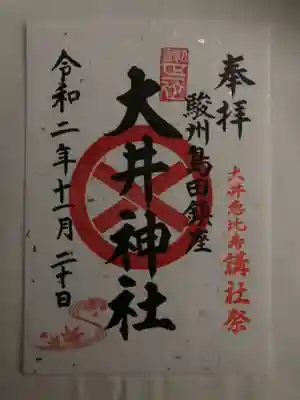 奉拝
大井恵比寿講社祭
駿州島田鎮座
大井神社
令和二年十一月二十日